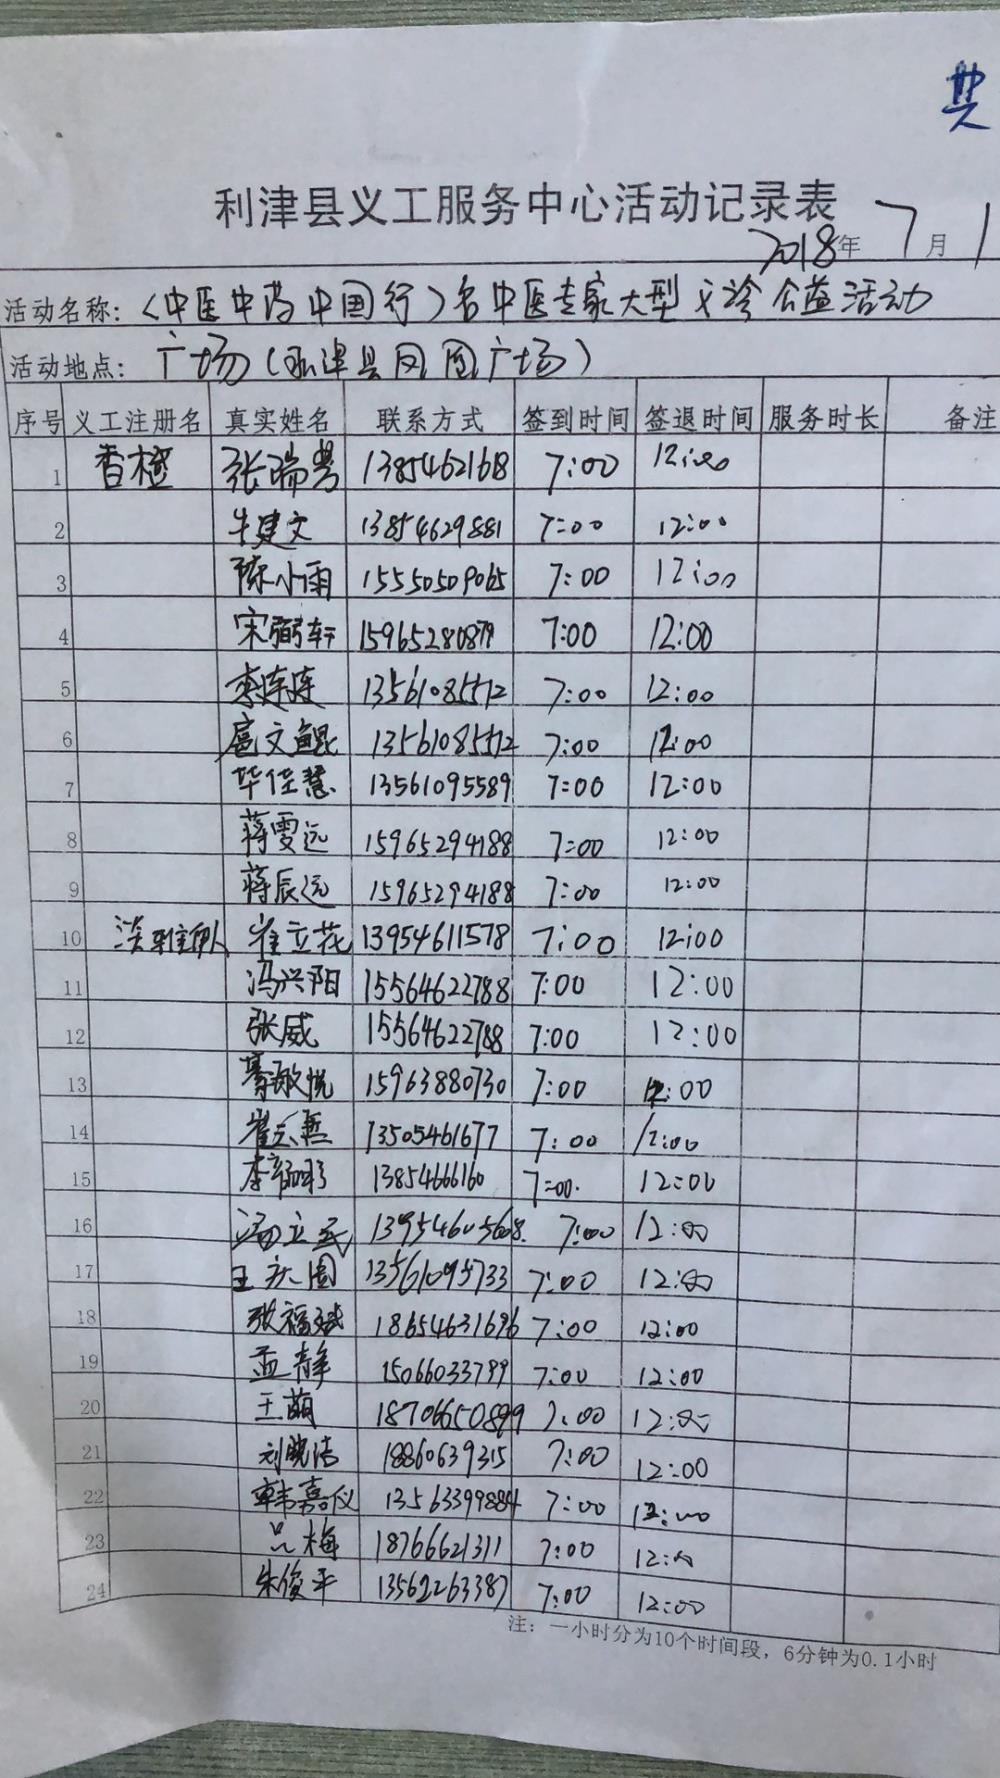 共
利津县义工服务中心活动记录表
2018年 7月 1
活动名称：《中医中药中国行》名中医专家大型义诊公益活动
活动地点：广场（利津县凤凰广场）
序号 义工注册名 真实姓名 联系方式 签到时间 签退时间 服务时长 备注
1 香橙 张瑞 13854621618 7:00 12:00
2 牛建文 13854629881 7:00 12:00
3 陈小雨 15550509065 7:00 12:00
4 宋弼轩 15965280879 7:00 12:00
5 李连连 13561085512 7:00 12:00
6 扈文鲲 13561085512 7:00 12:00
7 毕佳慧 13561095589 7:00 12:00
8 蒋雯远 15965294188 7:00 12:00
9 蒋辰远 15965294188 7:00 12:00
10 崔立花 13954611578 7:00 12:00
11 冯兴阳 15564622788 7:00 12:00
12 张威 15564622788 7:00 12:00
13 綦敏悦 15963880730 7:00 12:00
14 崔 13505461677 7:00 12:00
15 李 13854666160 7:00. 12:00
16 冯立民 13954605668. 7:00 12:00
17 王庆国 13561095733 7:00 12:00
18 张福斌 18654631696 7:00 12:00
19 孟静 15066033799 7:00 12:00
20 王萌 18706650899 7:00 12:00
21 刘晓洁 18860639315 7:00 12:00
22 韩嘉仪 13563399884 7:00 12:00
23 吕梅 18766621311 7:00 12:00
24 朱俊平 13562263387 7:00 12:00
注：一小时分为10个时间段，6分钟为0.1小时